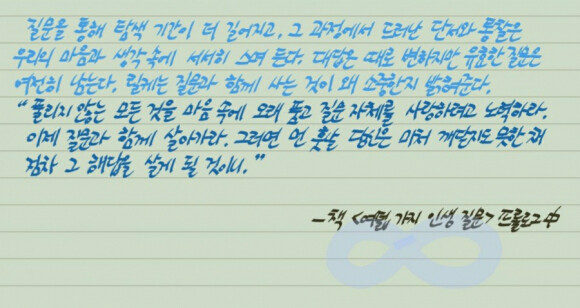 질문을 통해 탐색 기간이 더 길어지고, 그 과정에서 드러난 단서와 통찰은
우리의 마음과 생각 속에 서서히 스며 든다. 대답은 때로 변하지만 유효한 질문은
여전히 남는다. 릴케는 질문과 함께 사는 것이 왜 소중한지 밝혀준다.
"풀리지 않는 모든 것을 마음 속에 오래 품고 질문 자체를 사랑하려고 노력하라.
이제 질문과 함께 살아가라. 그러면 먼 훗날 당신은 미처 깨닫지도 못한 채
점차 그 해답을 살게 될 것이니."
-책 <여덟 가지 인생 질문> 프롤로그 中